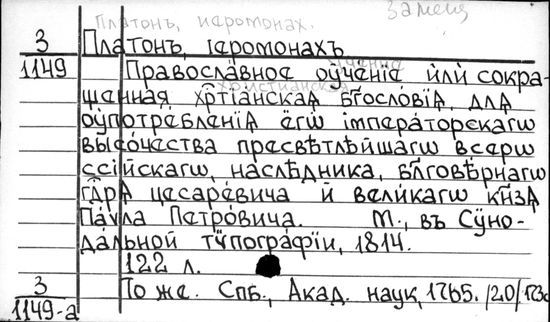 Платонъ, иеромонах. Замещ
3 Платонъ, іеромонахъ
1149 Православное оу҆че́нїе и҆лѝ сокра-
щенная хрⷭ҇тїанская бг҃осло́вїя, для
оу҆потребленїя є҆гѡ̀ імпера́торскагѡ
высо́чества пресвѣтлѣйшагѡ всеро
ссі́йскагѡ, наслѣ́дника, бл҃говѣ́рнагѡ
гдⷭ҇ря цесаре́вича и҆ вели́кагѡ кн҃зя
Па́ѵла Петро́вича. М., въ Сѷно-
да́льной тѷпогра́фїи, 1814.
122 л.
3 То же. Спб., Акад. наук, 1765. /20/
1149-а